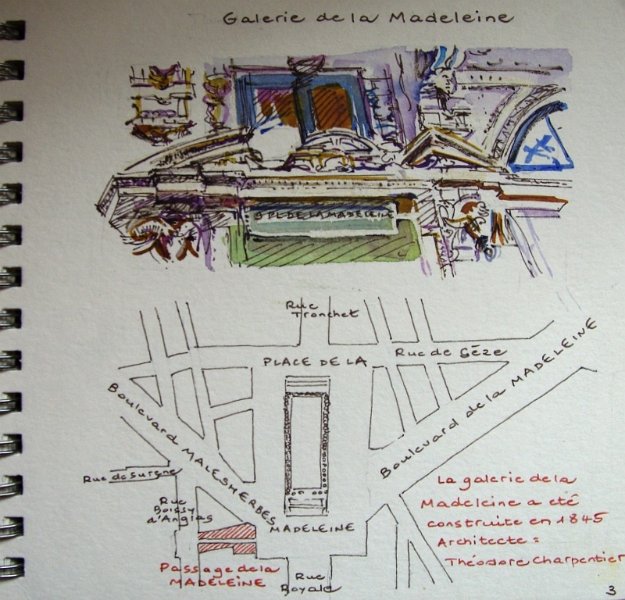 Galerie de la Madeleine
9 PL. DE LA MADELEINE
Rue
Tronchet
PLACE DE LA
Rue de Sèze
Boulevard MALESHERBES
Boulevard de la MADELEINE
Rue de Surene
Rue
Boissy
d'Anglas
MADELEINE
Passage de la
MADELEINE
Rue
Royale
La galerie de la
Madeleine a été
construite en 1845
Architecte :
Théodore Charpentier
3